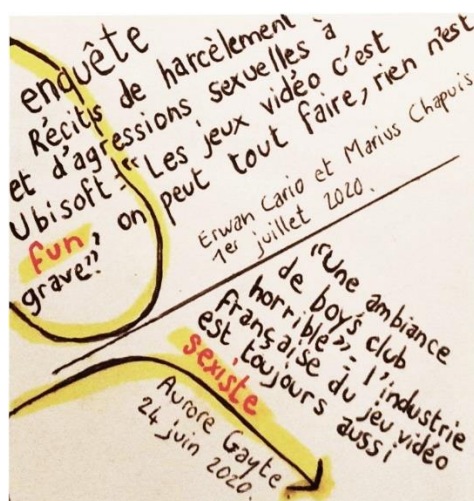 enquête
Récits de harcèlement
et d'agressions sexuelles à
Ubisoft : "Les jeux vidéo c'est
fun, on peut tout faire, rien n'est
grave".
Erwan Cario et Marius Chapuis
1er juillet 2020.
"Une ambiance
de boy's club
horrible" : l'industrie
française du jeu vidéo
est toujours aussi
sexiste
Aurore Gayte
24 juin 2020.